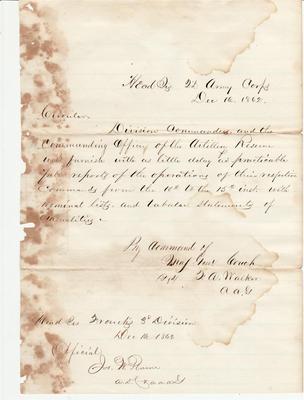 Head Qrs 2d Army Corps
Dec 16. 1862.
Circular
Division Commanders and the
Commanding Officer of the Artillery Reserve
will furnish with as little delay as practicable
full reports of the operations of their respective
Commands from the 10th to the 15th inst. with
nominal lists and tabular statements of
casualties.
By Command of
Maj Genl Couch
Sgd F. A. Walker
A.A.G.
Head Qrs French's 3d Division
Dec 16 1862
Official
Jos. W. Plume